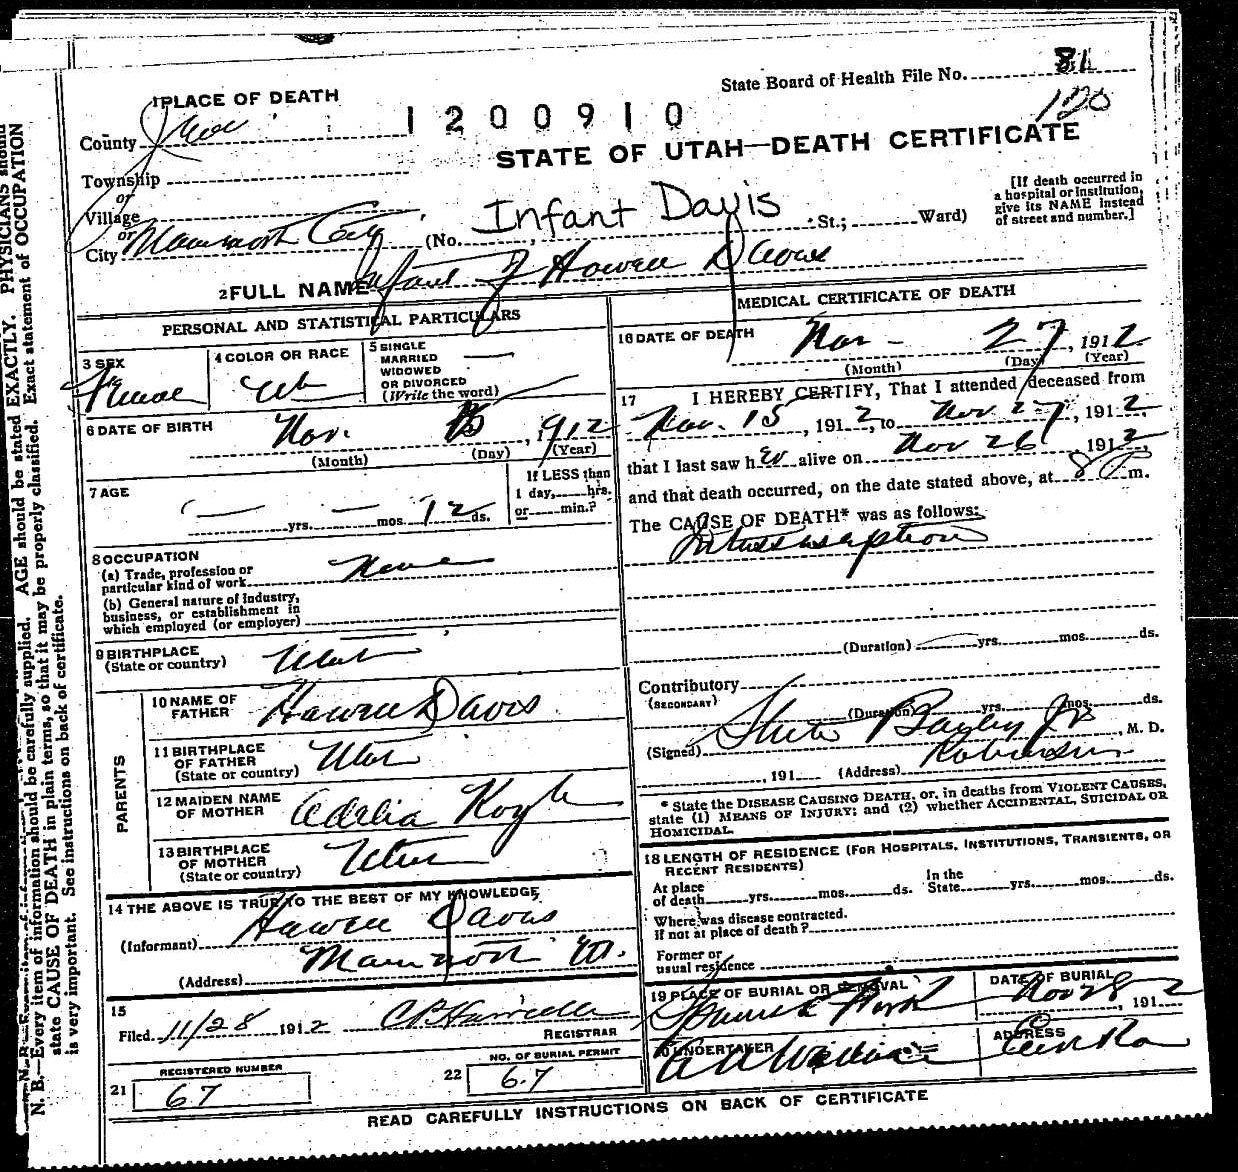 State Board of Health File No. 81
120
1 PLACE OF DEATH
1200910
County Juab
STATE OF UTAH—DEATH CERTIFICATE
Township
or
Village
or
City Mammoth City (No. Infant Davis St.; Ward)
[If death occurred in
a hospital or institution,
give its NAME instead
of street and number.]
2 FULL NAME Infant of Howell Davis
PERSONAL AND STATISTICAL PARTICULARS
3 SEX Female
4 COLOR OR RACE Wh
5 SINGLE
MARRIED
WIDOWED
OR DIVORCED
(Write the word)
6 DATE OF BIRTH Nov. 15, 1912
(Month) (Day) (Year)
7 AGE
— yrs. — mos. 12 ds.
If LESS than
1 day, hrs.
or min.?
8 OCCUPATION
(a) Trade, profession or
particular kind of work None
(b) General nature of industry,
business, or establishment in
which employed (or employer)
9 BIRTHPLACE
(State or country) Utah
PARENTS
10 NAME OF
FATHER Howell Davis
11 BIRTHPLACE
OF FATHER
(State or country) Utah
12 MAIDEN NAME
OF MOTHER Adelia Koyle
13 BIRTHPLACE
OF MOTHER
(State or country) Utah
14 THE ABOVE IS TRUE TO THE BEST OF MY KNOWLEDGE
(Informant) Howell Davis
(Address) Mammoth Ut.
15
Filed 11/28 1912
REGISTRAR
REGISTERED NUMBER
21 67
NO. OF BURIAL PERMIT
22 67
MEDICAL CERTIFICATE OF DEATH
16 DATE OF DEATH Nov 27, 1912
(Month) (Day) (Year)
17 I HEREBY CERTIFY, That I attended deceased from
Nov. 15, 1912, to Nov. 27, 1912,
that I last saw her alive on Nov 26, 1912,
and that death occurred, on the date stated above, at 8 P m.
The CAUSE OF DEATH* was as follows:
Intussusception
(Duration) yrs. mos. ds.
Contributory
(SECONDARY)
(Duration) yrs. mos. ds.
(Signed) Steele Bailey Jr, M. D.
, 191 (Address) Robinson
* State the DISEASE CAUSING DEATH, or, in deaths from VIOLENT CAUSES,
state (1) MEANS OF INJURY; and (2) whether ACCIDENTAL, SUICIDAL OR
HOMICIDAL.
18 LENGTH OF RESIDENCE (FOR HOSPITALS, INSTITUTIONS, TRANSIENTS, OR
RECENT RESIDENTS)
At place
of death yrs. mos. ds.
In the
State yrs. mos. ds.
Where was disease contracted.
if not at place of death?
Former or
usual residence
19 PLACE OF BURIAL OR REMOVAL
Spanish Fork
DATE OF BURIAL
Nov 28, 1912
20 UNDERTAKER
ADDRESS
Eureka
READ CAREFULLY INSTRUCTIONS ON BACK OF CERTIFICATE
N. B.—Every item of information should be carefully supplied. AGE should be stated EXACTLY. PHYSICIANS should
state CAUSE OF DEATH in plain terms, so that it may be properly classified. Exact statement of OCCUPATION
is very important. See instructions on back of certificate.